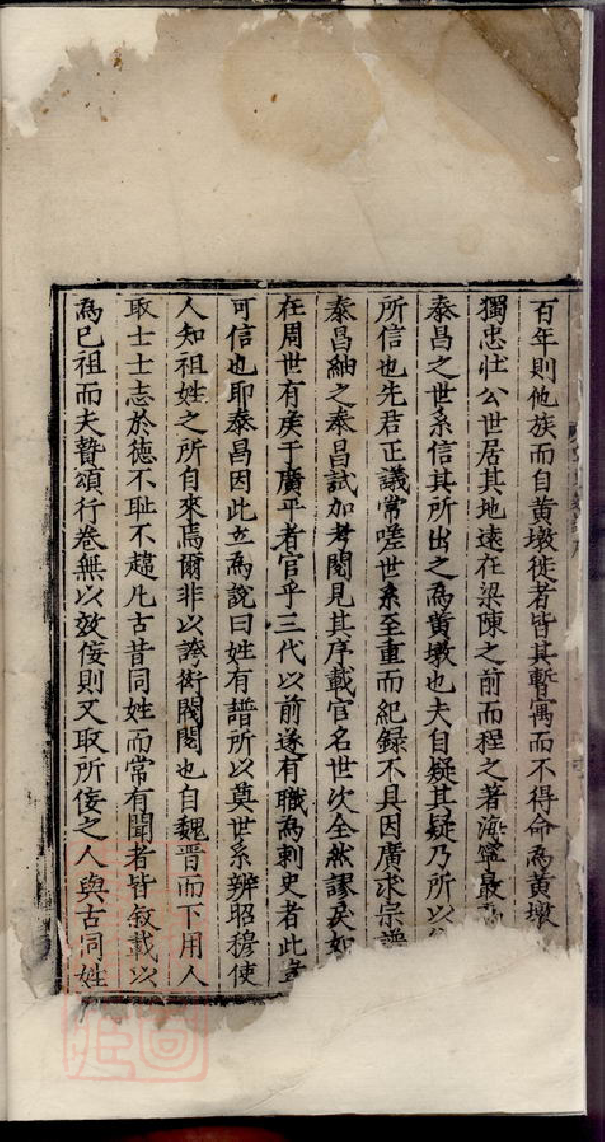 百年則他族而自黃墩徙者皆其暫寓而不得命為黃墩
獨忠壯公世居其地遠在梁陳之前而程之著海寧最
泰昌之世系信其所出之為黃墩也夫自疑其疑乃所以
所信也先君正議常嗟世系至重而紀録不具因廣求宗譜
泰昌紬之泰昌試加考閱見其序載官名世次全然謬戾如
在周世有矦于廣平者官乎三代以前遂有職為刺史者此豈
可信也耶泰昌因此立為說曰姓有譜所以奠世系辨昭穆使
人知祖姓之所自來焉爾非以誇衒閥閱也自魏晉而下用人
取士士志於德不耻不趨凡古昔同姓而常有聞者皆敘載以
為已祖而夫贄頌行卷無以效佞則又取所佞之人與古同姓